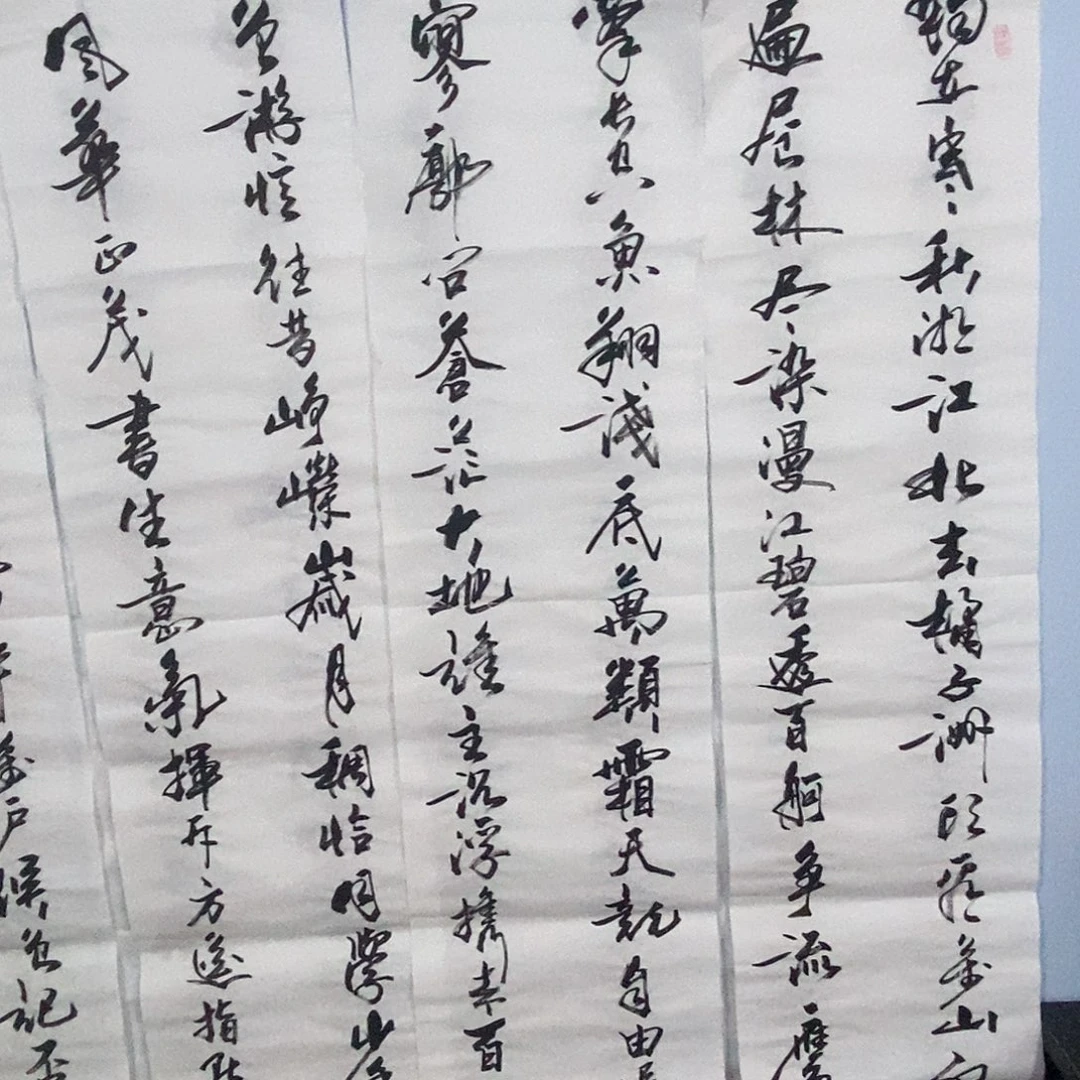 獨立寒秋湘江北去橘子洲頭看萬山
遍层林尽染漫江碧透百舸争流鷹
擊長空魚翔淺底萬類霜天競自由
寥廓问蒼茫大地誰主沉浮携来百
曾游憶往昔崢嶸歲月稠恰同學少
風華正茂書生意氣揮斥方遒指點
年萬户侯曾記否